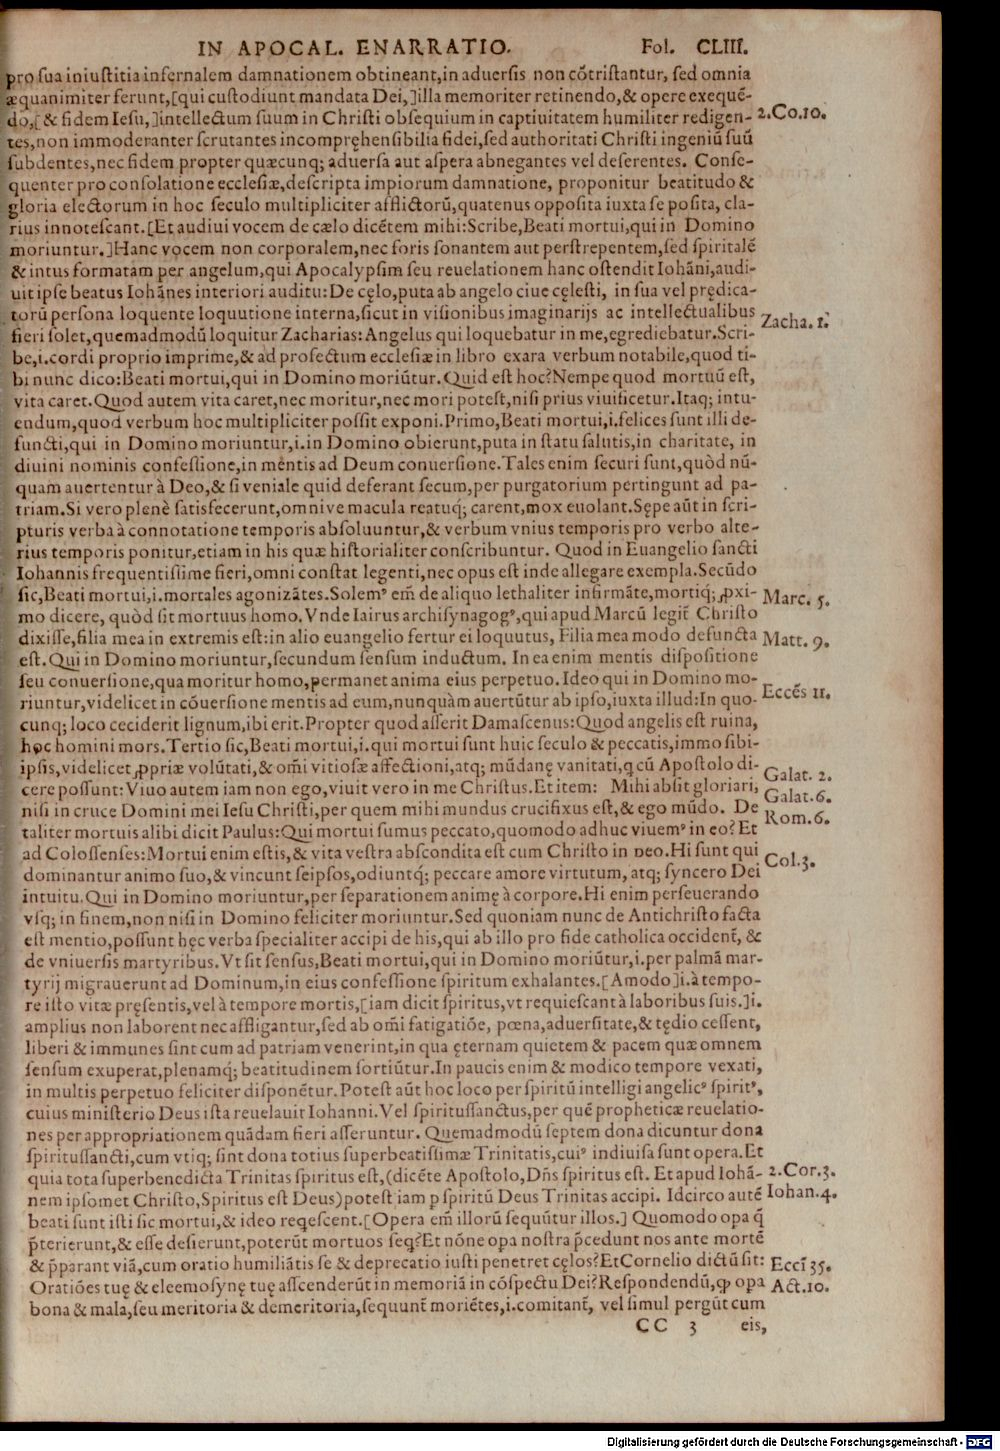 IN APOCAL. ENARRATIO. Fol. CLIII.
pro sua iniustitia infernalem damnationem obtineant,in aduersis non cõtristantur, sed omnia
æquanimiter ferunt,[qui custodiunt mandata Dei,]illa memoriter retinendo,& opere exequẽ-
do,[& fidem Iesu,]intellectum suum in Christi obsequium in captiuitatem humiliter redigen- 2.Co.10.
tes,non immoderanter scrutantes incompręhensibilia fidei,sed authoritati Christi ingeniũ suũ
subdentes,nec fidem propter quæcunq; aduersa aut aspera abnegantes vel deserentes. Conse-
quenter pro consolatione ecclesiæ,descripta impiorum damnatione, proponitur beatitudo &
gloria electorum in hoc seculo multipliciter afflictorũ,quatenus opposita iuxta se posita, cla-
rius innotescant.[Et audiui vocem de cælo dicẽtem mihi:Scribe,Beati mortui,qui in Domino
moriuntur.]Hanc vocem non corporalem,nec foris sonantem aut perstrepentem,sed spiritalẽ
& intus formatam per angelum,qui Apocalypsim seu reuelationem hanc ostendit Iohãni,audi-
uit ipse beatus Iohãnes interiori auditu:De cęlo,puta ab angelo ciue cęlesti, in sua vel prędica-
torũ persona loquente loquutione interna,sicut in visionibus imaginarijs ac intellectualibus
fieri solet,quemadmodũ loquitur Zacharias:Angelus qui loquebatur in me,egrediebatur.Scri- Zacha. 1.
be,i.cordi proprio imprime,& ad profectum ecclesiæ in libro exara verbum notabile,quod ti-
bi nunc dico:Beati mortui,qui in Domino moriũtur.Quid est hoc?Nempe quod mortuũ est,
vita caret.Quod autem vita caret,nec moritur,nec mori potest,nisi prius viuificetur.Itaq; intu-
endum,quod verbum hoc multipliciter possit exponi.Primo,Beati mortui,i.felices sunt illi de-
functi,qui in Domino moriuntur,i.in Domino obierunt,puta in statu salutis,in charitate, in
diuini nominis confessione,in mentis ad Deum conuersione.Tales enim securi sunt,quòd nũ-
quam auertentur à Deo,& si veniale quid deferant secum,per purgatorium pertingunt ad pa-
triam.Si vero plenè satisfecerunt,omnive macula reatuq́; carent,mox euolant.Sępe aũt in scri-
pturis verba à connotatione temporis absoluuntur,& verbum vnius temporis pro verbo alte-
rius temporis ponitur,etiam in his quæ historialiter conscribuntur. Quod in Euangelio sancti
Iohannis frequentissime fieri,omni constat legenti,nec opus est inde allegare exempla.Secũdo
sic,Beati mortui,i.mortales agonizãtes.Solemꝰ em̃ de aliquo lethaliter infirmãte,mortiq; ꝓxi- Marc. 5.
mo dicere, quòd sit mortuus homo.Vnde Iairus archisynagogꝰ,qui apud Marcũ legit̃ Christo
dixisse,filia mea in extremis est:in alio euangelio fertur ei loquutus, Filia mea modo defuncta Matt. 9.
est.Qui in Domino moriuntur,secundum sensum inductum. In ea enim mentis dispositione
seu conuersione,qua moritur homo,permanet anima eius perpetuo.Ideo qui in Domino mo-
riuntur,videlicet in cõuersione mentis ad eum,nunquàm auertũtur ab ipso,iuxta illud:In quo- Eccẽs 11.
cunq; loco ceciderit lignum,ibi erit.Propter quod asserit Damascenus:Quod angelis est ruina,
hoc homini mors.Tertio sic,Beati mortui,i.qui mortui sunt huic seculo & peccatis,immo sibi-
ipsis,videlicet ꝓpriæ volũtati,& om̃i vitiosæ affectioni,atq; mũdanę vanitati,q cũ Apostolo di- Galat. 2.
cere possunt:Viuo autem iam non ego,viuit vero in me Christus.Et item: Mihi absit gloriari, Galat.6.
nisi in cruce Domini mei Iesu Christi,per quem mihi mundus crucifixus est,& ego mũdo. De Rom.6.
taliter mortuis alibi dicit Paulus:Qui mortui sumus peccato,quomodo adhuc viuemꝰ in eo? Et
ad Colossenses:Mortui enim estis,& vita vestra abscondita est cum Christo in DEO.Hi sunt qui Col.3.
dominantur animo suo,& vincunt seipsos,odiuntq́; peccare amore virtutum, atq; syncero Dei
intuitu.Qui in Domino moriuntur,per separationem animę à corpore.Hi enim perseuerando
vsq; in finem,non nisi in Domino feliciter moriuntur.Sed quoniam nunc de Antichristo facta
est mentio,possunt hęc verba specialiter accipi de his,qui ab illo pro fide catholica occident̃, &
de vniuersis martyribus.Vt sit sensus,Beati mortui,qui in Domino moriũtur,i.per palmã mar-
tyrij migrauerunt ad Dominum,in eius confessione spiritum exhalantes.[Amodo]i.à tempo-
re isto vitæ pręsentis,vel à tempore mortis,[iam dicit spiritus,vt requiescant à laboribus suis.]i.
amplius non laborent nec affligantur,sed ab om̃i fatigatiõe, pœna,aduersitate,& tędio cessent,
liberi & immunes sint cum ad patriam venerint,in qua ęternam quietem & pacem quæ omnem
sensum exuperat,plenamq́; beatitudinem sortiũtur.In paucis enim & modico tempore vexati,
in multis perpetuo feliciter disponẽtur.Potest aũt hoc loco per spiritũ intelligi angelicꝰ spiritꝰ,
cuius ministerio Deus ista reuelauit Iohanni.Vel spiritussanctus,per quẽ propheticæ reuelatio-
nes per appropriationem quãdam fieri asseruntur. Quemadmodũ septem dona dicuntur dona
spiritussancti,cum vtiq; sint dona totius superbeatissimæ Trinitatis,cuiꝰ indiuisa sunt opera.Et
quia tota superbenedicta Trinitas spiritus est,(dicẽte Apostolo,Dñs spiritus est. Et apud Iohã- 2.Cor.3.
nem ipsomet Christo,Spiritus est Deus)potest iam ꝑ spiritũ Deus Trinitas accipi. Idcirco autẽ Iohan.4.
beati sunt isti sic mortui,& ideo reqescent.[Opera em̃ illorũ sequũtur illos.] Quomodo opa q̃
p̃terierunt,& esse desierunt,poterũt mortuos seq?Et nõne opa nostra p̃cedunt nos ante mortẽ
& p̃parant viã,cum oratio humiliãtis se & deprecatio iusti penetret cęlos?Et Cornelio dictũ sit: Ecci̇ 35.
Oratiões tuę & eleemosynę tuę asscenderũt in memoriã in cõspectu Dei?Respondendũ,ꝙ opa Act.10.
bona & mala,seu meritoria & demeritoria,sequunt̃ moriẽtes,i.comitant̃, vel simul pergũt cum
CC 3 eis,
Digitalisierung gefördert durch die Deutsche Forschungsgemeinschaft - DFG